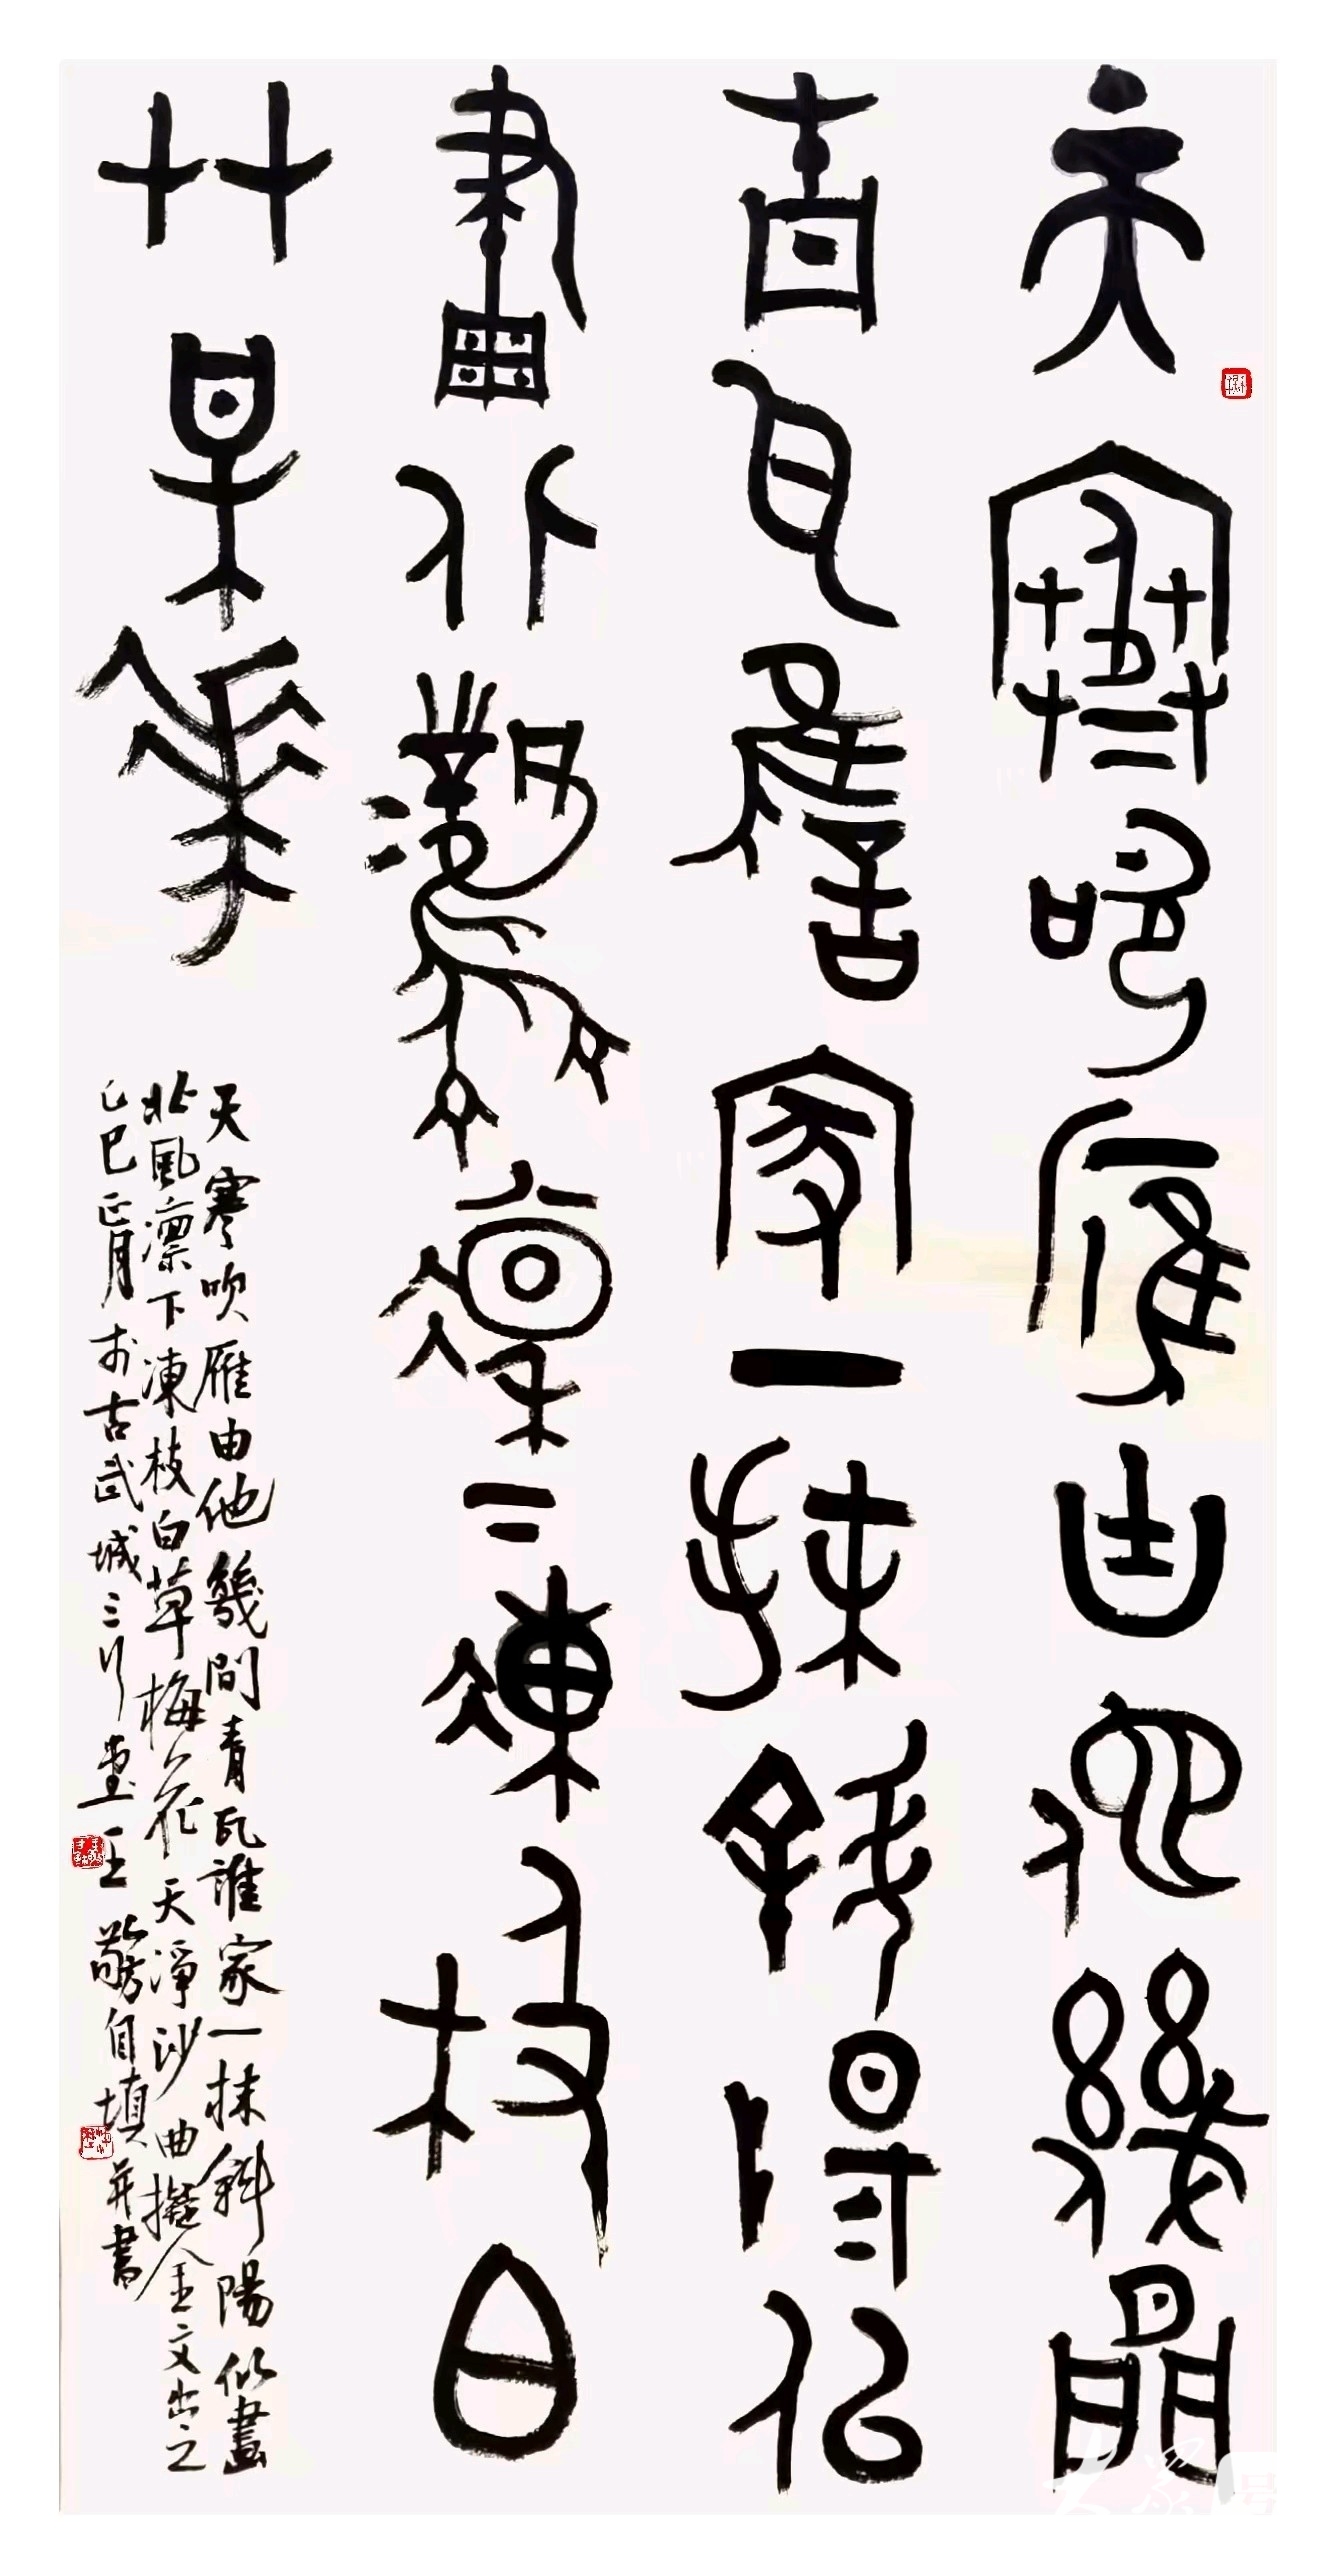 天寒吹雁由他幾間
青瓦誰家一抹斜陽似
畫北風凛下凍枝白
草梅花
天寒吹雁由他幾間青瓦誰家一抹斜陽似畫
北風凛下凍枝白草梅花 天淨沙曲擬金文出之
乙巳正月於古武城三堂王自填并書
大眾号